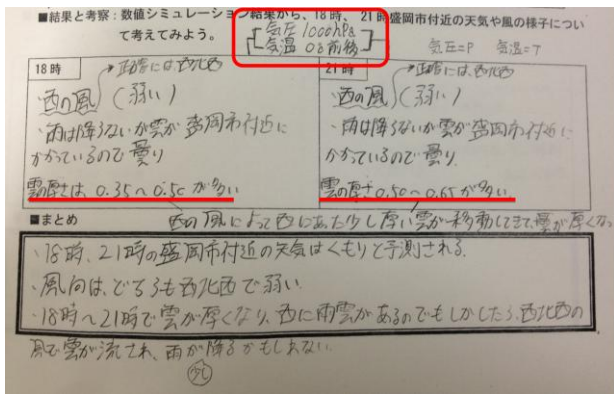 ■結果と考察：数値シミュレーション結果から、18時、21時盛岡市付近の天気や風の様子について考えてみよう。
気圧 1000hPa
気温 0℃前後
気圧=P 気温=T
18時
→正確には西北西
・西の風 (弱い)
・雨は降らないが雲が盛岡市付近に
かかっているので曇り
雲の厚さは、0.35〜0.50が多い
21時
→正確には、西北西
・西の風 (弱い)
・雨は降らないが雲が盛岡市付近に
かかっているので曇り
雲の厚さ0.50〜0.65が多い
■まとめ
西の風によって西にあった少し厚い雲が移動してきて、雲が厚くなっ
・18時、21時の盛岡市付近の天気はくもりと予測される。
・風向は、どちらも西北西で弱い。
・18時〜21時で雲が厚くなり、西に雨雲があるのでもしかしたら、西北西の
風で雲が流され、雨が降るかもしれない。
少し